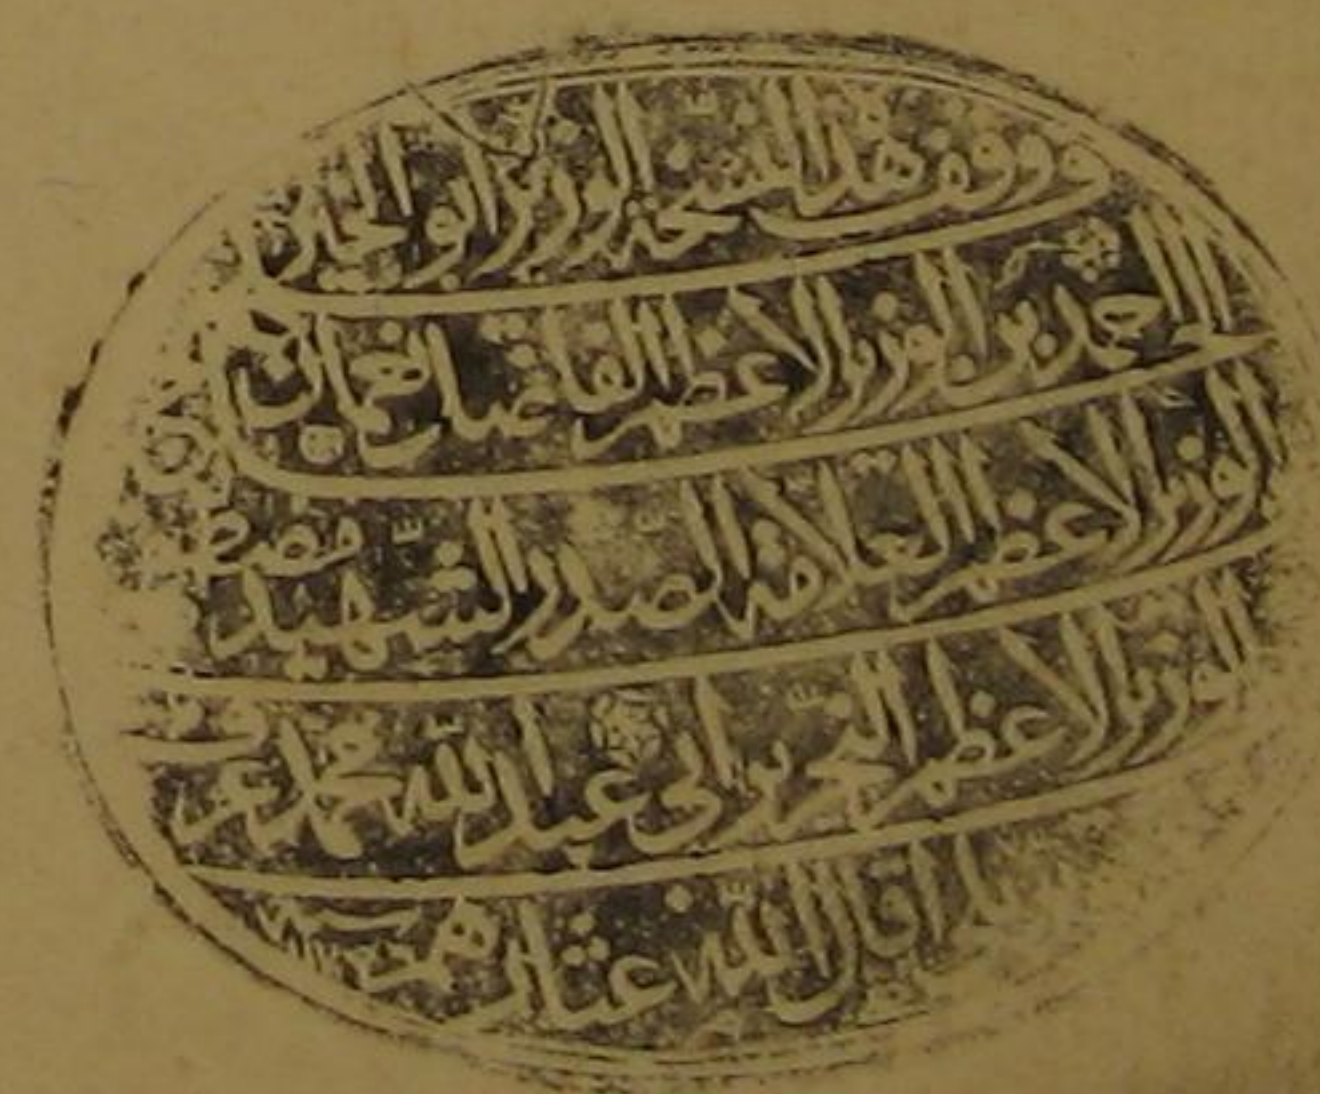 وقف هذه النسخة الوزير ابو الخير
الحاج احمد بن الوزير الاعظم الفاضل نعمان بن
الوزير الاعظم العلامة الصدر الشهيد مصطفى
الوزير الاعظم النحرير ابي عبد الله محمد عرف
اقال الله عثارهم